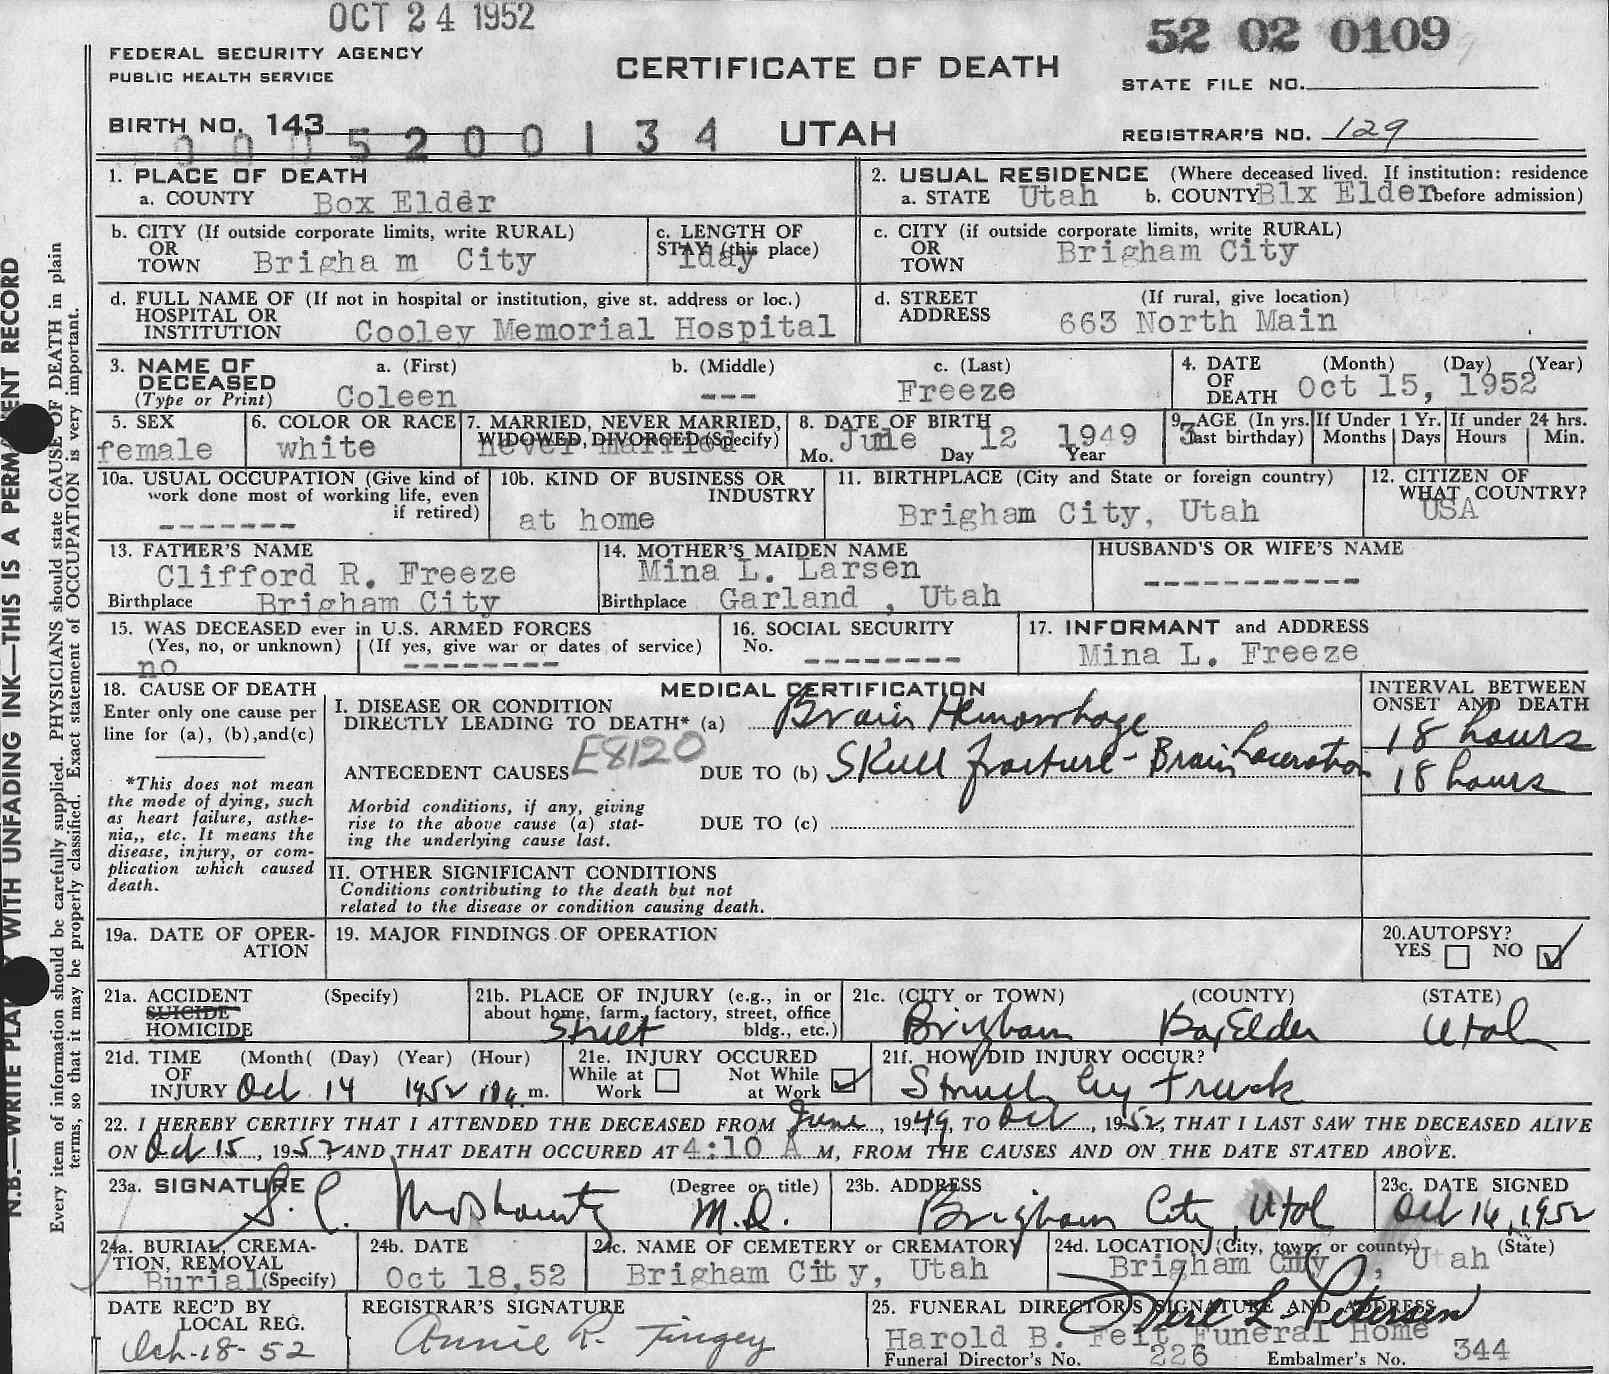 OCT 24 1952
52 02 0109
FEDERAL SECURITY AGENCY
PUBLIC HEALTH SERVICE
CERTIFICATE OF DEATH
STATE FILE NO.
BIRTH NO. 143
0005200134
UTAH
REGISTRAR'S NO. 129
N.B.—WRITE PLA WITH UNFADING INK—THIS IS A PERMA ENT RECORD
Every item of information should be carefully supplied. PHYSICIANS should state CAUSE OF DEATH in plain
terms, so that it may be properly classified. Exact statement of OCCUPATION is very important.
1. PLACE OF DEATH
a. COUNTY Box Elder
2. USUAL RESIDENCE (Where deceased lived. If institution: residence
a. STATE Utah b. COUNTY Blx Elder before admission)
b. CITY (If outside corporate limits, write RURAL)
OR
TOWN Brigha m City
c. LENGTH OF
STAY (this place)
1day
c. CITY (if outside corporate limits, write RURAL)
OR
TOWN Brigham City
d. FULL NAME OF (If not in hospital or institution, give st. address or loc.)
HOSPITAL OR
INSTITUTION Cooley Memorial Hospital
d. STREET (If rural, give location)
ADDRESS 663 North Main
3. NAME OF a. (First) b. (Middle) c. (Last)
DECEASED
(Type or Print) Coleen --- Freeze
4. DATE (Month) (Day) (Year)
OF
DEATH Oct 15, 1952
5. SEX
female
6. COLOR OR RACE
white
7. MARRIED, NEVER MARRIED,
WIDOWED, DIVORCED (Specify)
never married
8. DATE OF BIRTH
Mo. June Day 12 Year 1949
9. AGE (In yrs.
last birthday)
3
If Under 1 Yr.
Months Days
If under 24 hrs.
Hours Min.
10a. USUAL OCCUPATION (Give kind of
work done most of working life, even
if retired)
-------
10b. KIND OF BUSINESS OR
INDUSTRY
at home
11. BIRTHPLACE (City and State or foreign country)
Brigham City, Utah
12. CITIZEN OF
WHAT COUNTRY?
USA
13. FATHER'S NAME
Clifford R. Freeze
Birthplace Brigham City
14. MOTHER'S MAIDEN NAME
Mina L. Larsen
Birthplace Garland , Utah
HUSBAND'S OR WIFE'S NAME
-----------
15. WAS DECEASED ever in U.S. ARMED FORCES
(Yes, no, or unknown) (If yes, give war or dates of service)
no --------
16. SOCIAL SECURITY
No. --------
17. INFORMANT and ADDRESS
Mina L. Freeze
18. CAUSE OF DEATH
Enter only one cause per
line for (a), (b),and(c)
*This does not mean
the mode of dying, such
as heart failure, asthe-
nia,, etc. It means the
disease, injury, or com-
plication which caused
death.
MEDICAL CERTIFICATION
I. DISEASE OR CONDITION
DIRECTLY LEADING TO DEATH* (a) Brain Hemorrhage
E8120
ANTECEDENT CAUSES DUE TO (b) Skull fracture - Brain Laceration
Morbid conditions, if any, giving
rise to the above cause (a) stat-
ing the underlying cause last.
DUE TO (c)
INTERVAL BETWEEN
ONSET AND DEATH
18 hours
18 hours
II. OTHER SIGNIFICANT CONDITIONS
Conditions contributing to the death but not
related to the disease or condition causing death.
19a. DATE OF OPER-
ATION
19. MAJOR FINDINGS OF OPERATION
20. AUTOPSY?
YES NO
21a. ACCIDENT (Specify)
SUICIDE
HOMICIDE
21b. PLACE OF INJURY (e.g., in or
about home, farm, factory, street, office
bldg., etc.)
Street
21c. (CITY or TOWN) (COUNTY) (STATE)
Brigham Box Elder Utah
21d. TIME (Month( (Day) (Year) (Hour)
OF
INJURY Oct 14 1952 m.
21e. INJURY OCCURED
While at Work Not While at Work
21f. HOW DID INJURY OCCUR?
Struck by truck
22. I HEREBY CERTIFY THAT I ATTENDED THE DECEASED FROM June, 1949, TO Oct, 1952, THAT I LAST SAW THE DECEASED ALIVE
ON Oct 15, 1952 AND THAT DEATH OCCURED AT 4:10 A M, FROM THE CAUSES AND ON THE DATE STATED ABOVE.
23a. SIGNATURE (Degree or title)
M.D.
23b. ADDRESS
Brigham City, Utah
23c. DATE SIGNED
Oct 16, 1952
24a. BURIAL, CREMA-
TION, REMOVAL
Burial (Specify)
24b. DATE
Oct 18,52
24c. NAME OF CEMETERY or CREMATORY
Brigham City, Utah
24d. LOCATION (City, town, or county) (State)
Brigham City , Utah
DATE REC'D BY
LOCAL REG.
Oct-18-52
REGISTRAR'S SIGNATURE
Annie R. Tingey
25. FUNERAL DIRECTOR'S SIGNATURE AND ADDRESS
L. Petersen
Harold B. Felt Funeral Home
Funeral Director's No. 226 Embalmer's No. 344